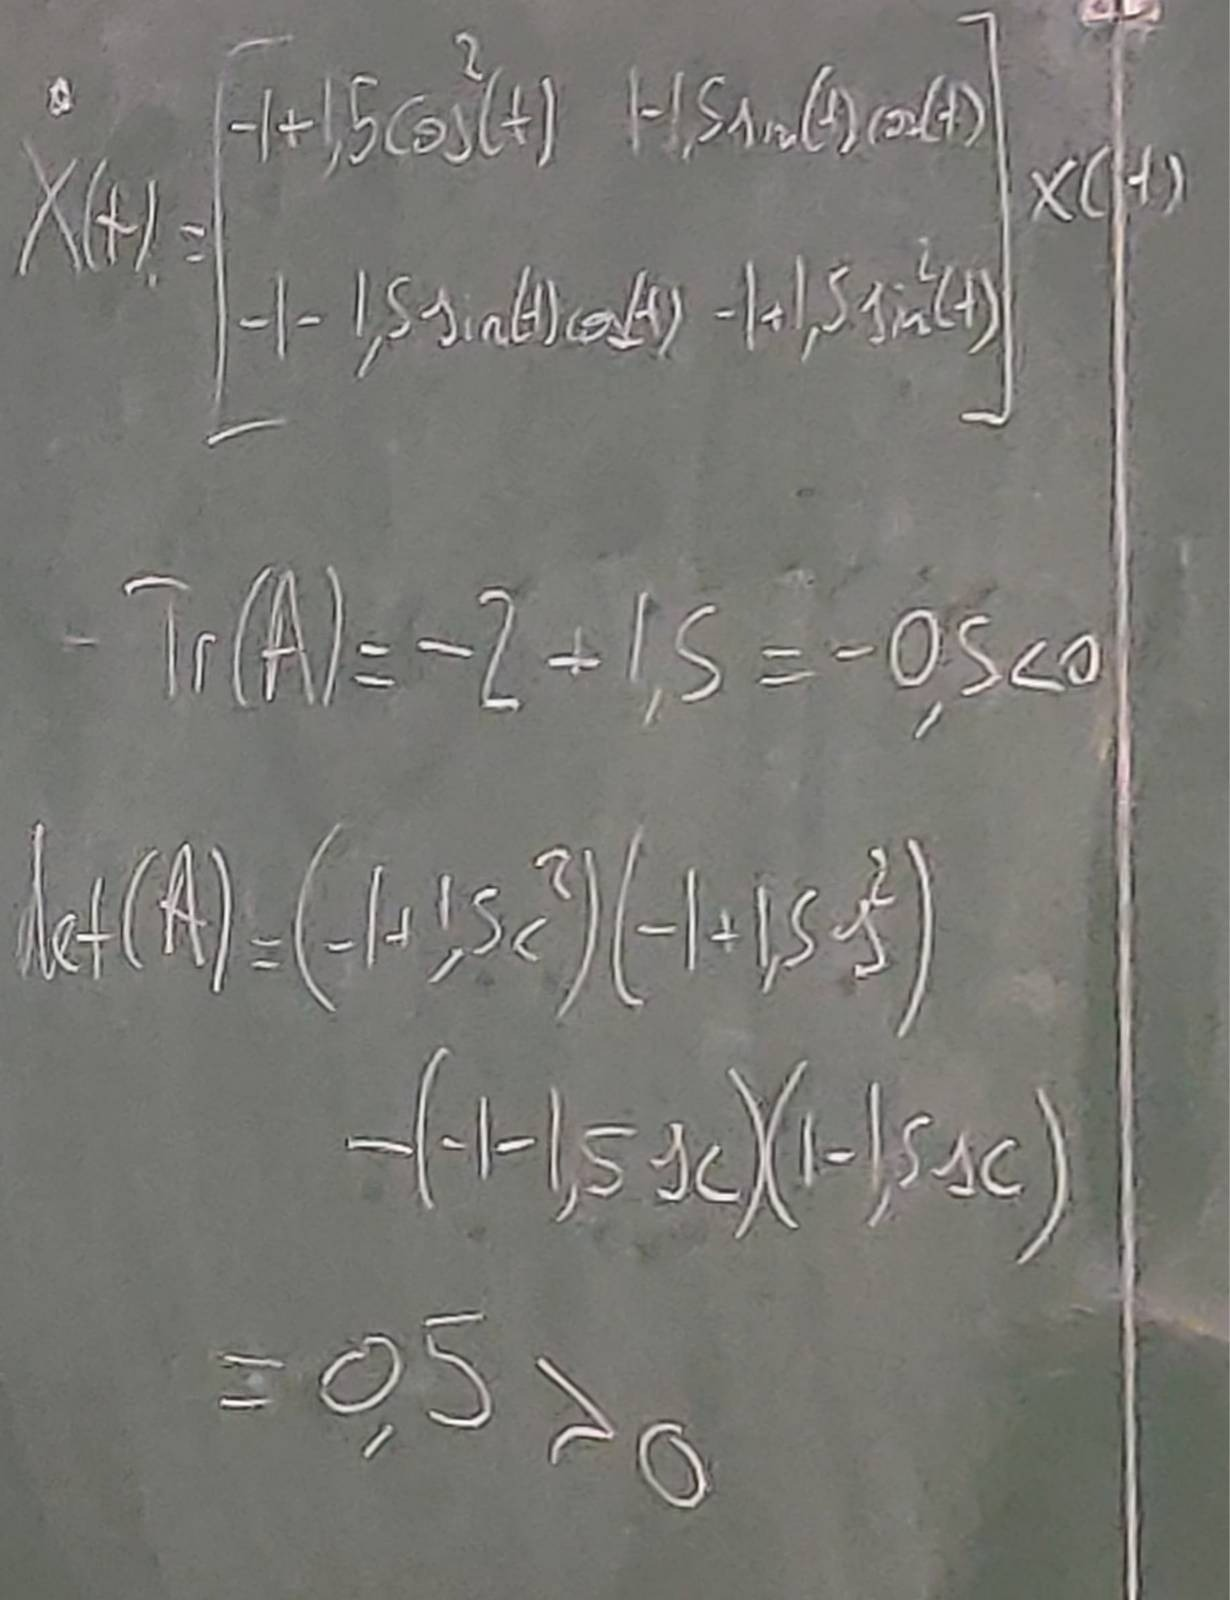 ẋ(t) = [ -1+1,5cos²(t) 1-1,5sin(t)cos(t) ] x(t)
[ -1-1,5sin(t)cos(t) -1+1,5sin²(t) ]
- Tr(A) = -2 + 1,5 = -0,5 < 0
det(A) = (-1+1,5c²)(-1+1,5s²)
-(-1-1,5sc)(1-1,5sc)
= 0,5 > 0